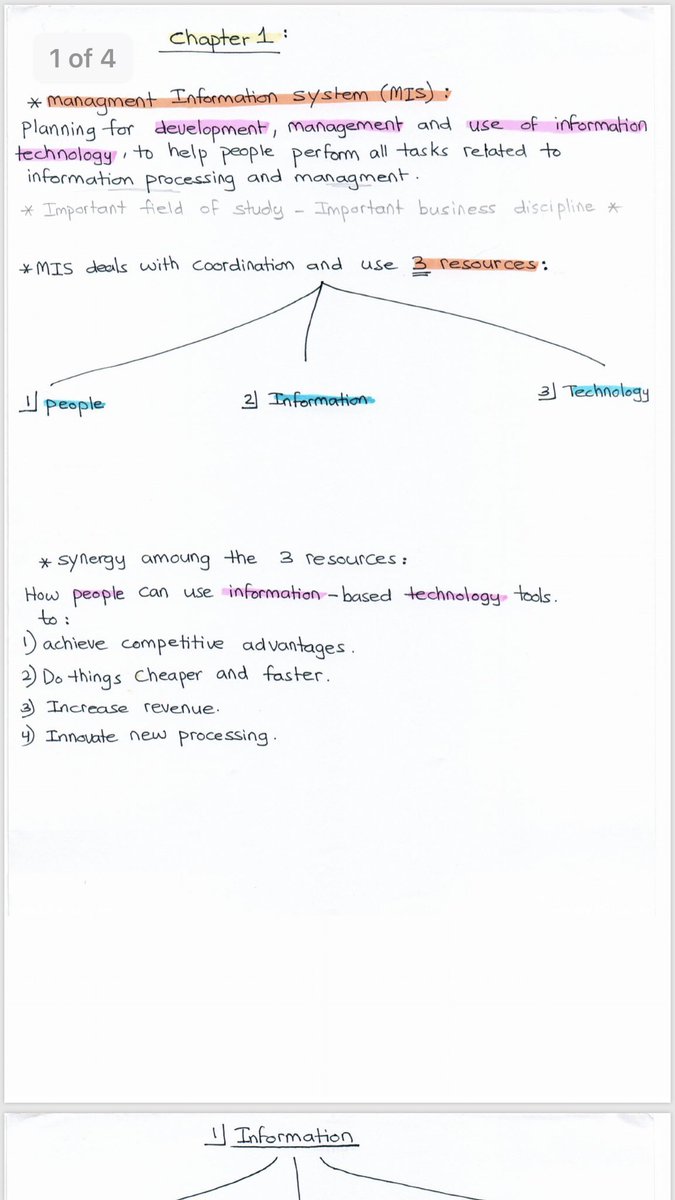 Chapter 1 :
1 of 4
* managment Information system (MIS) :
Planning for development, management and use of information
technology, to help people perform all tasks related to
information processing and managment.
* Important field of study - Important business discipline *
* MIS deals with coordination and use 3 resources:
1) people
2) Information
3) Technology
* synergy amoung the 3 resources:
How people can use information-based technology tools.
to :
1) achieve competitive advantages.
2) Do things cheaper and faster.
3) Increase revenue.
4) Innovate new processing.
1) Information